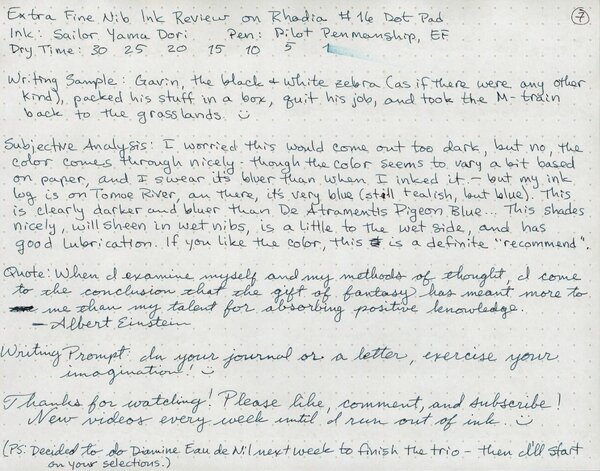 Extra Fine Nib Ink Review on Rhodia #16 Dot Pad ⑦
Ink: Sailor Yama Dori Pen: Pilot Penmanship, EF
Dry Time: 30 25 20 15 10 5 1
Writing Sample: Gavin, the black + white zebra (as if there were any other
kind), packed his stuff in a box, quit his job, and took the M-train
back to the grasslands. ü
Subjective Analysis: I worried this would come out too dark, but no, the
color comes through nicely - though the color seems to vary a bit based
on paper, and I swear it's bluer than when I inked it - but my ink
log is on Tomoe River, an there, it's very blue (still tealish, but blue). This
is clearly darker and bluer than De Atramentis Pigeon Blue... This shades
nicely, will sheen in wet nibs, is a little to the wet side, and has
good lubrication. If you like the color, this is a definite "recommend".
Quote: When I examine myself and my methods of thought, I come
to the conclusion that the gift of fantasy has meant more to
me than my talent for absorbing positive knowledge.
- Albert Einstein
Writing Prompt: In your journal or a letter, exercise your
imagination! ü
Thanks for watching! Please like, comment, and subscribe!
New videos every week until I run out of ink. ü
(PS: Decided to do Diamine Eau de Nil next week to finish the trio - then I'll start
on your selections.)